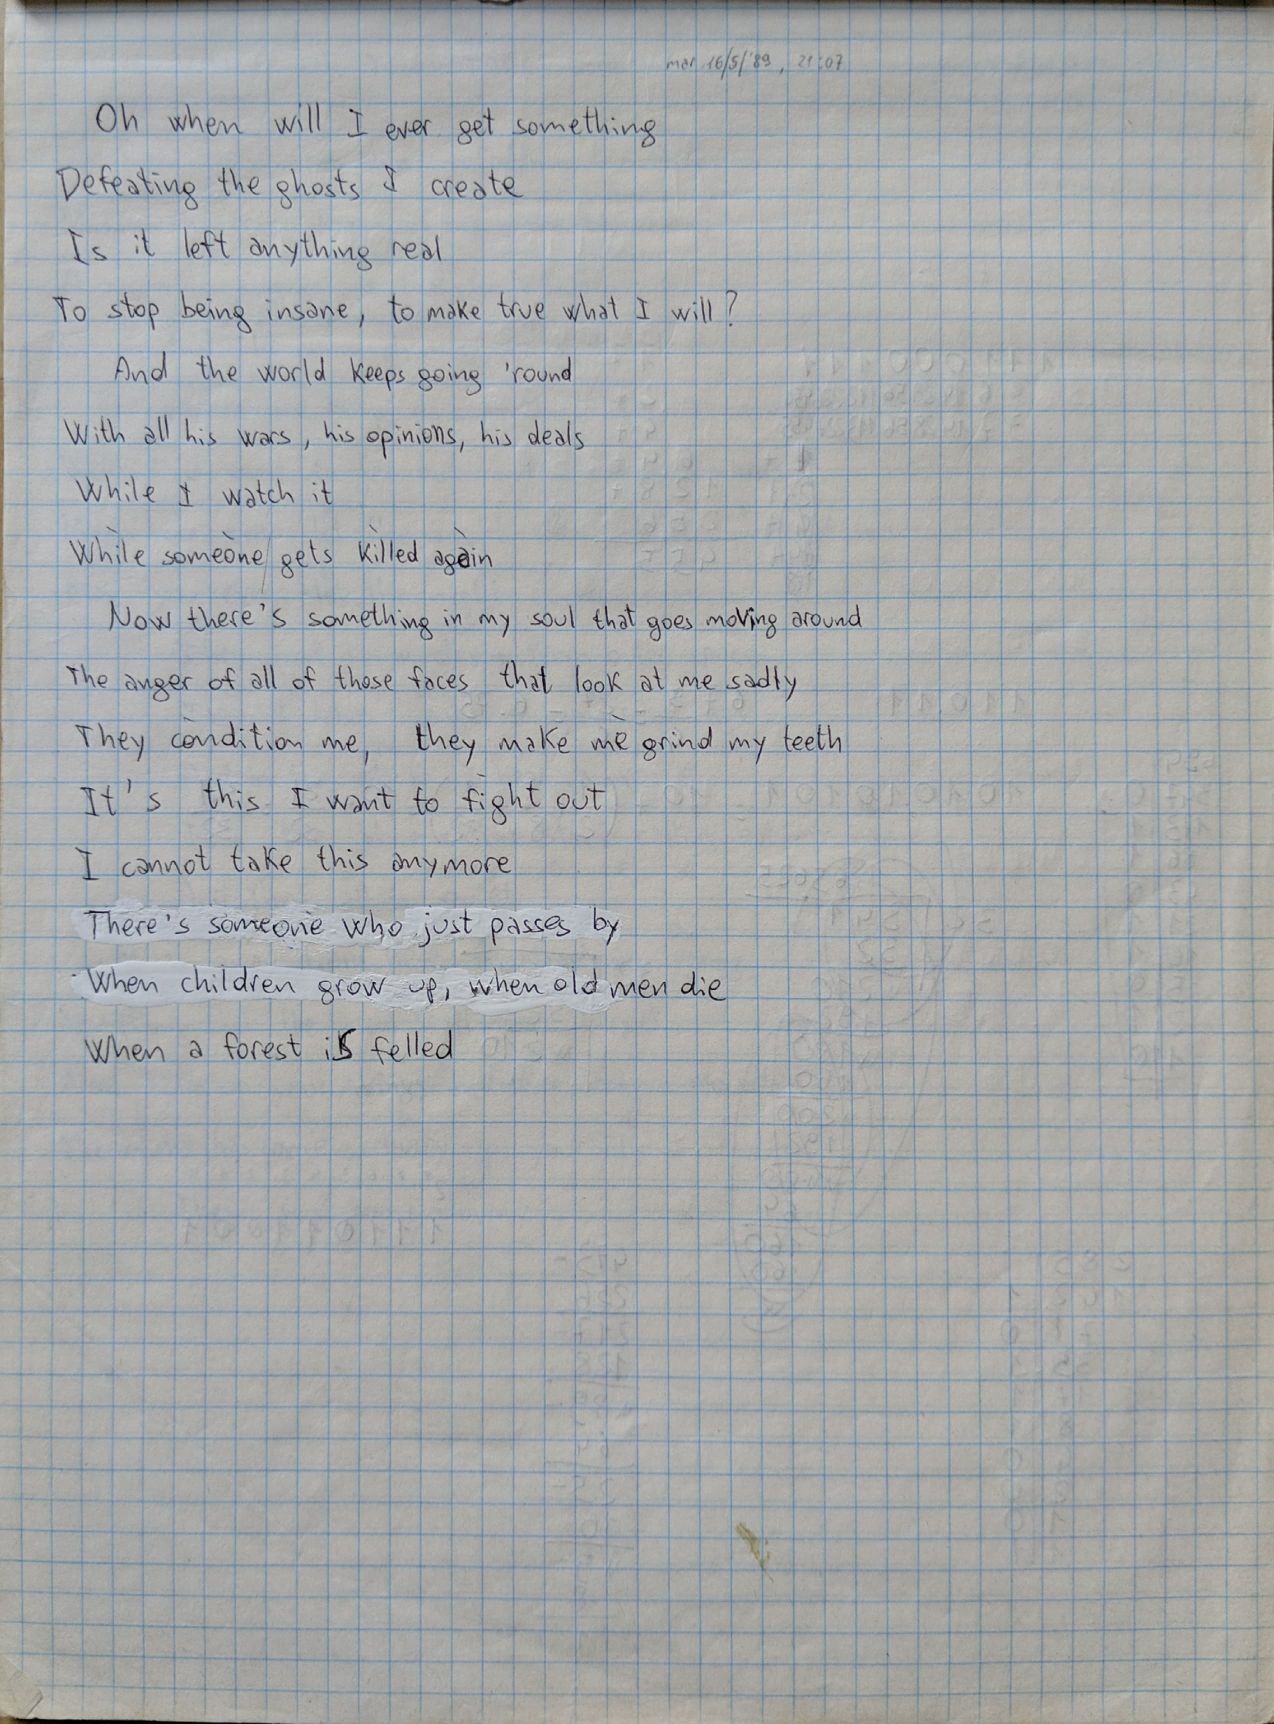 mar 16/5/'89, 21:07
Oh when will I ever get something
Defeating the ghosts I create
Is it left anything real
To stop being insane, to make true what I will?
And the world keeps going 'round
With all his wars, his opinions, his deals
While I watch it
While someone gets killed again
Now there's something in my soul that goes moving around
The anger of all of those faces that look at me sadly
They condition me, they make me grind my teeth
It's this I want to fight out
I cannot take this anymore
There's someone who just passes by
When children grow up, when old men die
When a forest is felled